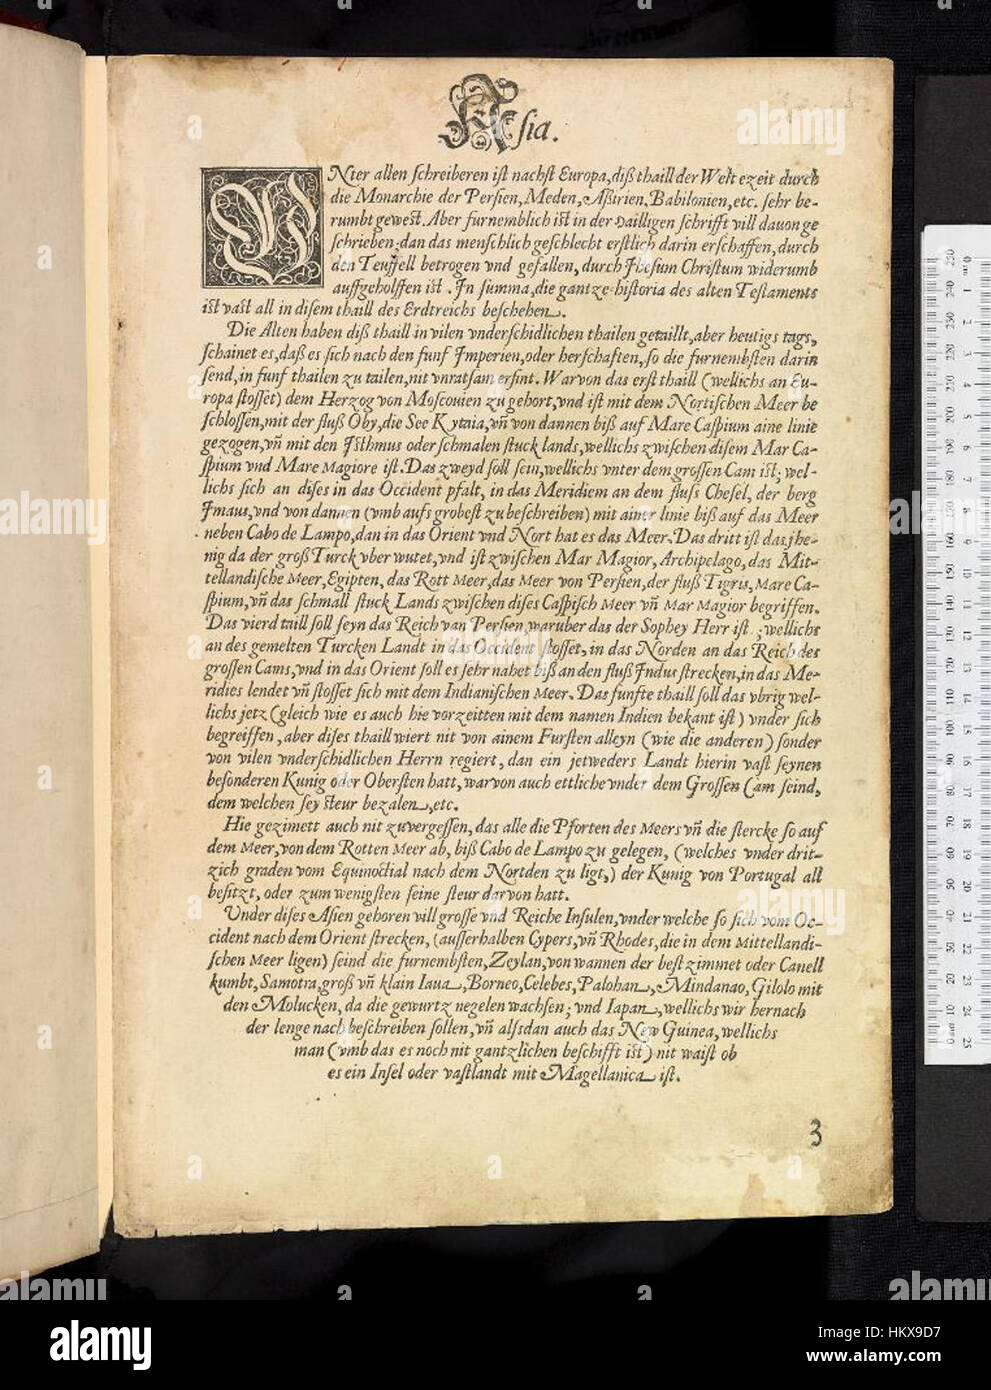 Asia.
VNter allen schreiberen ist nachst Europa, diß thaill der Welt ezeit durch
die Monarchie der Persien, Meden, Aßirien, Babilonien, etc. sehr be-
rumbt gewest. Aber furnemblich ist in der Hailligen schrifft vill dauon ge
schrieben: dan das menschlich geschlecht erstlich darin erschaffen, durch
den Teuffell betrogen vnd gefallen, durch Jhesum Christum widerumb
auffgeholffen ist. Jn summa, die gantze historia des alten Testaments
ist vast all in disem thaill des Erdtreichs beschehen.
Die Alten haben diß thaill in vilen vnderschidlichen thailen getaillt, aber heutigs tags,
schainet es, daß es sich nach den funf Jmperien, oder herschaften, so die furnembsten darin
send, in funf thailen zu tailen, nit vnratsam erfint. War von das erst thaill (wellichs an Eu-
ropa stosset) dem Herzog von Moscouien zu gehort, vnd ist mit dem Nortischen Meer be
schlossen, mit der fluß Oby, die See Kytaia, vñ von dannen biß auf Mare Caspium aine linie
gezogen, vñ mit den Jsthmus oder schmalen stuck lands, wellichs zwischen disem Mar Ca-
spium vnd Mare Magiore ist. Das zweyd soll sein, wellichs vnter dem grossen Cam ist, wel-
lichs sich an dises in das Occident pfalt, in das Meridiem an dem fluss Chesel, der berg
Jmaus, vnd von dannen (vmb aufs grobest zu beschreiben) mit ainer linie biß auf das Meer
neben Cabo de Lampo, dan in das Orient vnd Nort hat es das Meer. Das dritt ist das jhe-
nig da der groß Turck vber wutet, vnd ist zwischen Mar Magior, Archipelago, das Mit-
tellandische Meer, Egipten, das Rott Meer, das Meer von Persien, der fluß Tigris, Mare Ca-
spium, vñ das schmall stuck Lands zwischen dises Caspisch Meer vñ Mar Magior begriffen.
Das vierd taill soll seyn das Reich van Persien, waruber das der Sophey Herr ist, wellichs
an des gemelten Turcken Landt in das Occident stosset, in das Norden an das Reich des
grossen Cams, vnd in das Orient soll es sehr nahet biß an den fluß Jndus strecken, in das Me-
ridies lendet vñ stosset sich mit dem Indianischen Meer. Das funfte thaill soll das vbrig wel-
lichs jetz (gleich wie es auch hie vorzeitten mit dem namen Indien bekant ist) vnder sich
begreiffen, aber dises thaill wiert nit von ainem Fursten alleyn (wie die anderen) sonder
von vilen vnderschidlichen Herrn regiert, dan ein jetweders Landt hierin vast seynen
besonderen Kunig oder Obersten hatt, war von auch ettliche vnder dem Grossen Cam seind,
dem welchen sey steur bezalen, etc.
Hie gezimett auch nit zu vergessen, das alle die Pforten des Meers vñ die stercke so auf
dem Meer, von dem Rotten Meer ab, biß Cabo de Lampo zu gelegen, (welches vnder drit-
zich graden vom Equinoctial nach dem Nortden zu ligt,) der Kunig von Portugal all
besitzt, oder zum wenigsten seine steur dar von hatt.
Under dises Asien gehoren vill grosse vnd Reiche Insulen, vnder welche so sich vom Oc-
cident nach dem Orient strecken, (ausserhalben Cypers, vñ Rhodes, die in dem Mittellandi-
schen Meer ligen) seind die furnembsten, Zeylan, von wannen der best zimmet oder Canell
kumbt, Samotra, groß vñ klain Iaua, Borneo, Celebes, Palohan, Mindanao, Gilolo mit
den Molucken, da die gewurtz negelen wachsen; vnd Iapan, wellichs wir hernach
der lenge nach beschreiben sollen, vñ alssdan auch das New Guinea, wellichs
man (vmb das es noch nit gantzlichen beschifft ist) nit waist ob
es ein Insel oder vastlandt mit Magellanica ist.
3
alamy
Image ID: HKX9D7
www.alamy.com